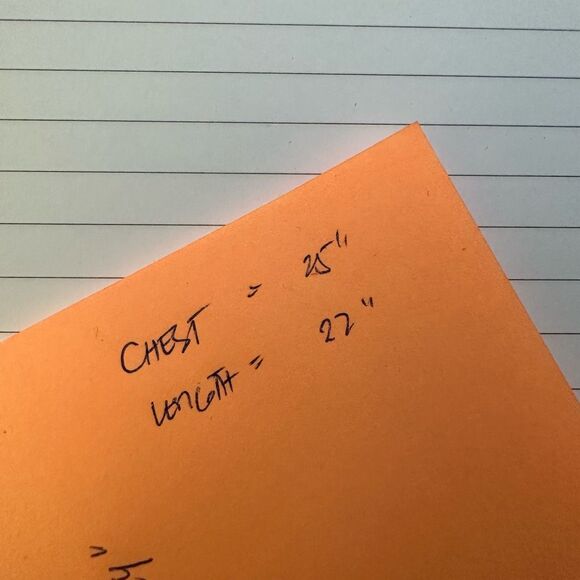 CHEST = 25"
LENGTH = 27"